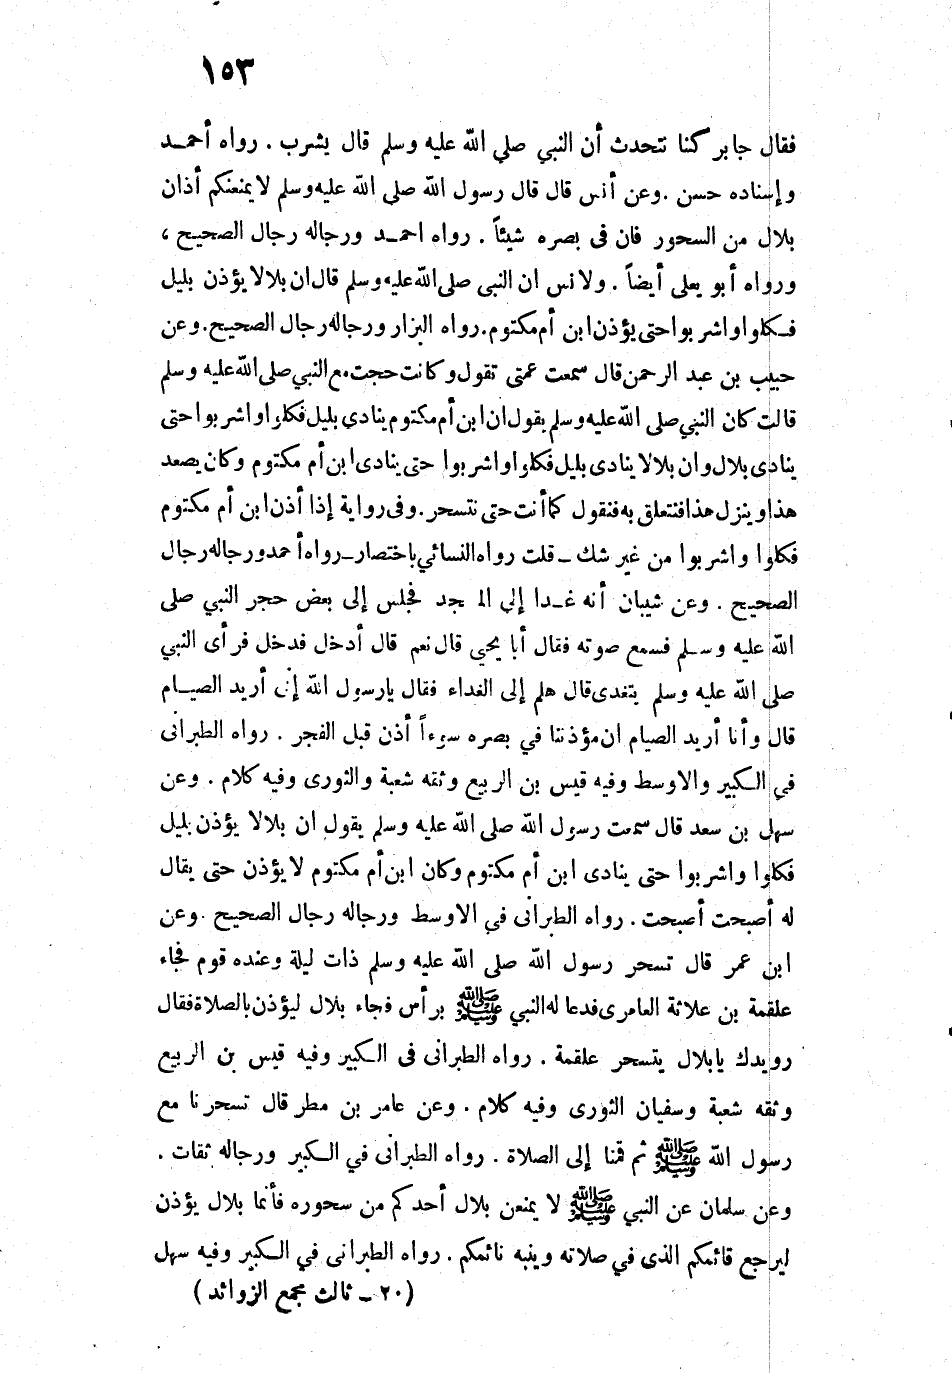 ١٥٣
فقال جابر كنا نتحدث أن النبي صلي الله عليه وسلم قال يشرب . رواه أحمـد
وإسناده حسن . وعن أنس قال قال رسول الله صلى الله عليه وسلم لا يمنعنكم أذان
بلال من السحور فان فى بصره شيئاً . رواه احمـد ورجاله رجال الصحيح ،
ورواه أبو يعلى أيضاً . ولانس ان النبى صلى الله عليه وسلم قال ان بلالا يؤذن بليل
فـكلوا واشربوا حتى يؤذن ابن أم مكتوم . رواه البزار ورجاله رجال الصحيح . وعن
حبيب بن عبد الرحمن قال سمعت عمتى تقول وكانت حجت مع النبي صلى الله عليه وسلم
قالت كان النبي صلى الله عليه وسلم يقول ان ابن أم مكتوم ينادى بليل فكلوا واشربوا حتى
ينادى بلال وان بلالا ينادى بليل فكلوا واشربوا حتى ينادى ابن أم مكتوم وكان يصعد
هذا وينزل هذا فنتعلق به فنقول كما أنت حتى نتسحر . وفى رواية إذا أذن ابن أم مكتوم
فكلوا واشربوا من غير شك ــ قلت رواه النسائي باختصار ــ رواه أحمد ورجاله رجال
الصحيح . وعن شيبان أنه غـدا إلى المسجد فجلس إلى بعض حجر النبي صلى
الله عليه وسـلم فسمع صوته فقال أبا يحيى قال نعم قال أدخل فدخل فرأى النبي
صلى الله عليه وسلم يتغدى قال هلم إلى الغداء فقال يارسول الله إنى أريد الصيـام
قال وأنا أريد الصيام ان مؤذننا في بصره سوءاً أذن قبل الفجر . رواه الطبرانى
في الـكبير والاوسط وفيه قيس بن الربيع وثقه شعبة والثورى وفيه كلام . وعن
سهل بن سعد قال سمعت رسول الله صلى الله عليه وسلم يقول ان بلالا يؤذن بليل
فكلوا واشربوا حتى ينادى ابن أم مكتوم وكان ابن أم مكتوم لا يؤذن حتى يقال
له أصبحت أصبحت . رواه الطبرانى في الاوسط ورجاله رجال الصحيح . وعن
ابن عمر قال تسحر رسول الله صلى الله عليه وسلم ذات ليلة وعنده قوم فجاء
علقمة بن علاثة العامرى فدعا له النبي ﷺ برأس فجاء بلال ليؤذن بالصلاة فقال
رويدك يابلال يتسحر علقمة . رواه الطبرانى فى الـكبير وفيه قيس بن الربيع
وثقه شعبة وسفيان الثورى وفيه كلام . وعن عامر بن مطر قال تسحرنا مع
رسول الله ﷺ ثم قمنا إلى الصلاة . رواه الطبرانى في الـكبير ورجاله ثقات .
وعن سلمان عن النبي ﷺ لا يمنعن بلال أحدكم من سحوره فأنما بلال يؤذن
ليرجع قائمكم الذى في صلاته وينبه نائمكم . رواه الطبرانى في الـكبير وفيه سهل
(٢٠ ــ ثالث مجمع الزوائد)